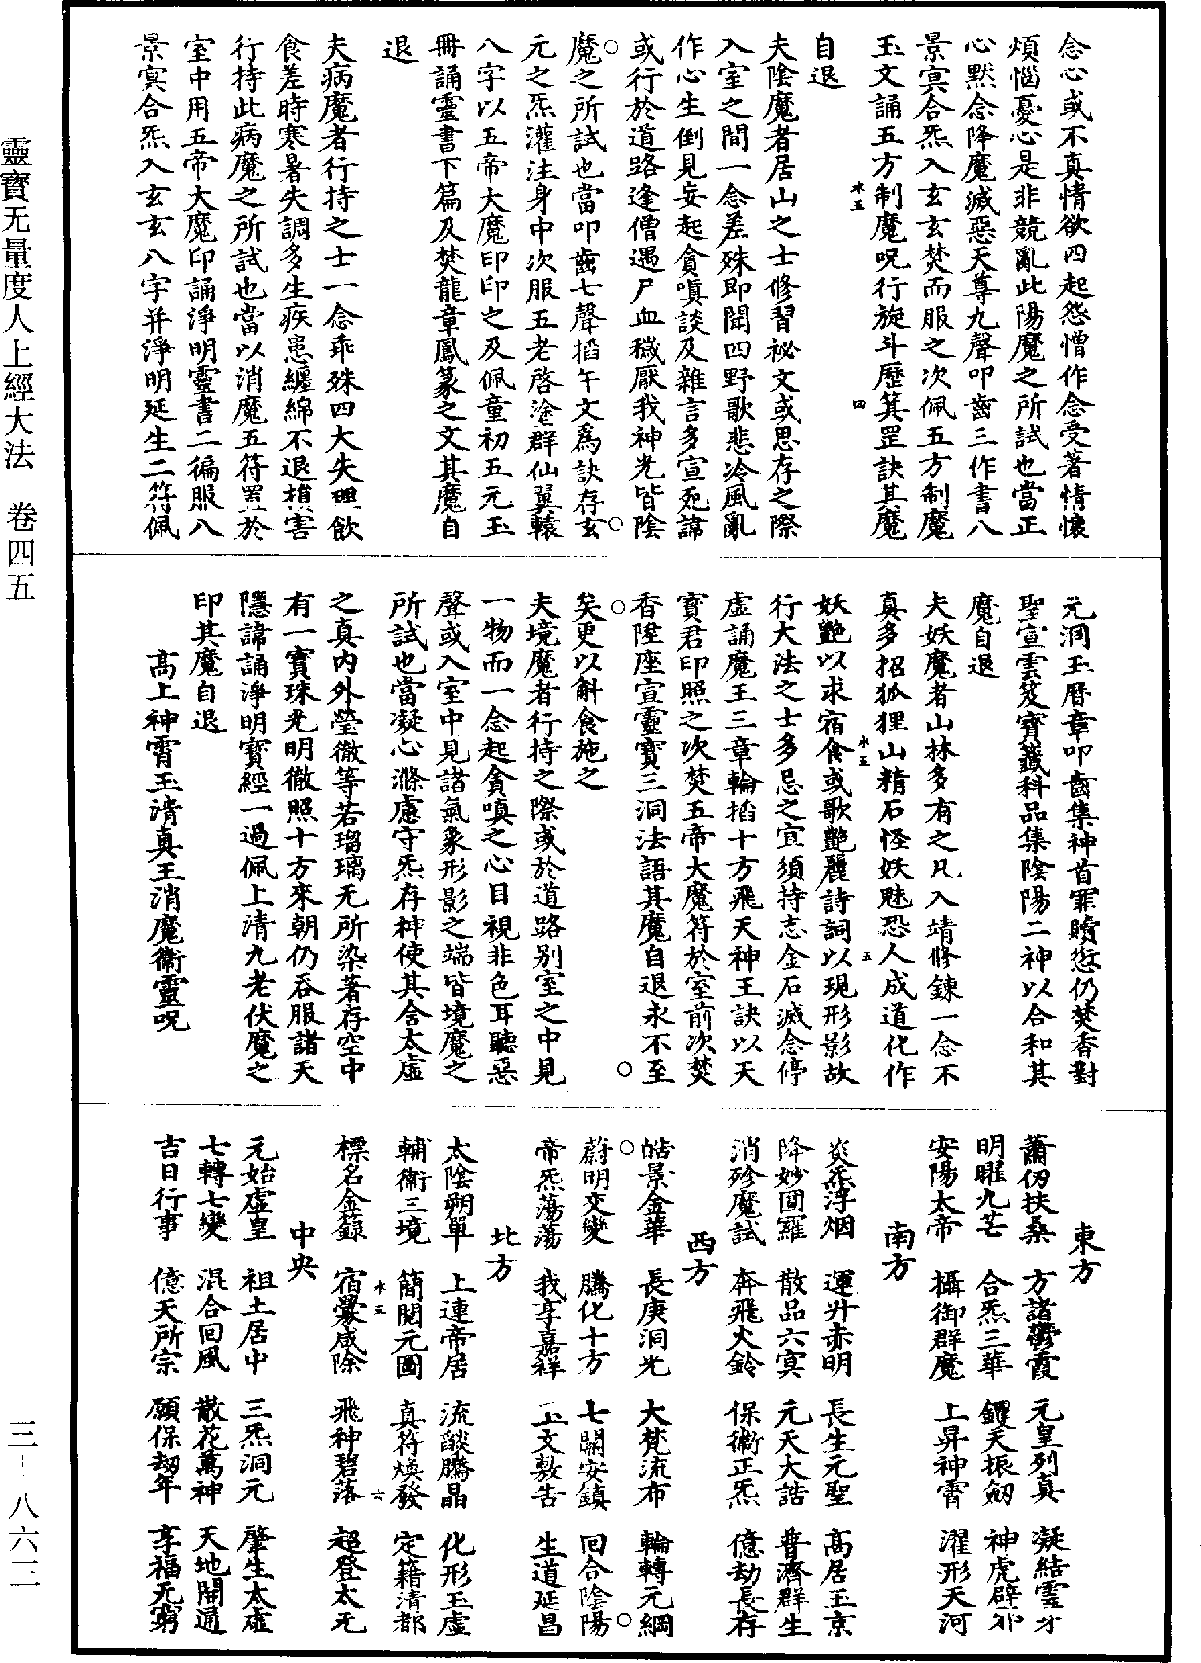 靈寶无量度人上經大法　卷四五
三－八六二
念心或不真情欲四起怨憎作念受著情懷
煩惱憂心是非競亂此陽魔之所試也當正
心默念降魔滅惡天尊九聲叩齒三作書八
景㝠合炁入玄玄焚而服之次佩五方制魔
玉文誦五方制魔呪行旋斗歷箕罡訣其魔
自退
夫陰魔者居山之士修習祕文或思存之際
入室之間一念差殊即聞四野歌悲冷風亂
作心生倒見妄起貪嗔談及雜言多宣死諱
或行於道路逢僧遇尸血穢厭我神光皆陰
魔之所試也當叩齒七聲掐午文為訣存玄
元之炁灌注身中次服五老啓塗群仙翼轅
八字以五帝大魔印印之及佩童初五元玉
冊誦靈書下篇及焚龍章鳳篆之文其魔自
退
夫病魔者行持之士一念乖殊四大失理飲
食差時寒暑失調多生疾患纏綿不退損害
行持此病魔之所試也當以消魔五符置於
室中用五帝大魔印誦淨明靈書二徧服八
景㝠合炁入玄玄八字并淨明延生二符佩
元洞玉曆章叩齒集神首罪贖愆仍焚香對
聖宣雲笈寶籖科品集陰陽二神以合和其
魔自退
夫妖魔者山林多有之凡入靖修鍊一念不
真多招狐狸山精石怪妖魅恐人成道化作
妖艷以求宿食或歌艷麗詩詞以現形影故
行大法之士多忌之宜須持志金石滅念停
虛誦魔王三章輪掐十方飛天神王訣以天
寶君印照之次焚五帝大魔符於室前次焚
香陞座宣靈寶三洞法語其魔自退永不至
矣更以斛食施之
夫境魔者行持之際或於道路別室之中見
一物而一念起貪嗔之心目視非色耳聽惡
聲或入室中見諸氣象形影之端皆境魔之
所試也當凝心滌慮守炁存神使其舍太虛
之真內外瑩徹等若瑠璃无所染著存空中
有一寶珠光明徹照十方來朝仍吞服諸天
隱諱誦淨明寶經一過佩上清九老伏魔之
印其魔自退
高上神霄玉清真王消魔衛靈呪
東方
蕭仞扶桑　方諸霞　元皇列真　凝結靈牙
明曜九芒　合炁三華　鑼天振劒　神虎辟邪
安陽太帝　攝御群魔　上昇神霄　濯形天河
南方
炎炁浮烟　運升赤明　長生元聖　高居玉京
降妙圃羅　散品六㝠　元天大誥　普濟群生
消殄魔試　奔飛火鈴　保衛正炁　億劫長存
西方
皓景金華　長庚洞光　大梵流布　輪轉元綱
蔚明交變　騰化十方　七關安鎮　回合陰陽
帝炁蕩蕩　我享嘉祥　玉文敷告　生道延昌
北方
太陰朔單　上連帝居　流燄騰晶　化形玉虛
輔衛三境　簡閱元圖　真符煥發　定籍清都
標名金錄　宿釁咸除　飛神碧落　超登太无
中央
元始虛皇　祖土居中　三炁洞元　肇生太虛
七轉七變　混合回風　散花萬神　天地開通
吉日行事　億天所宗　願保劫年　享福无窮